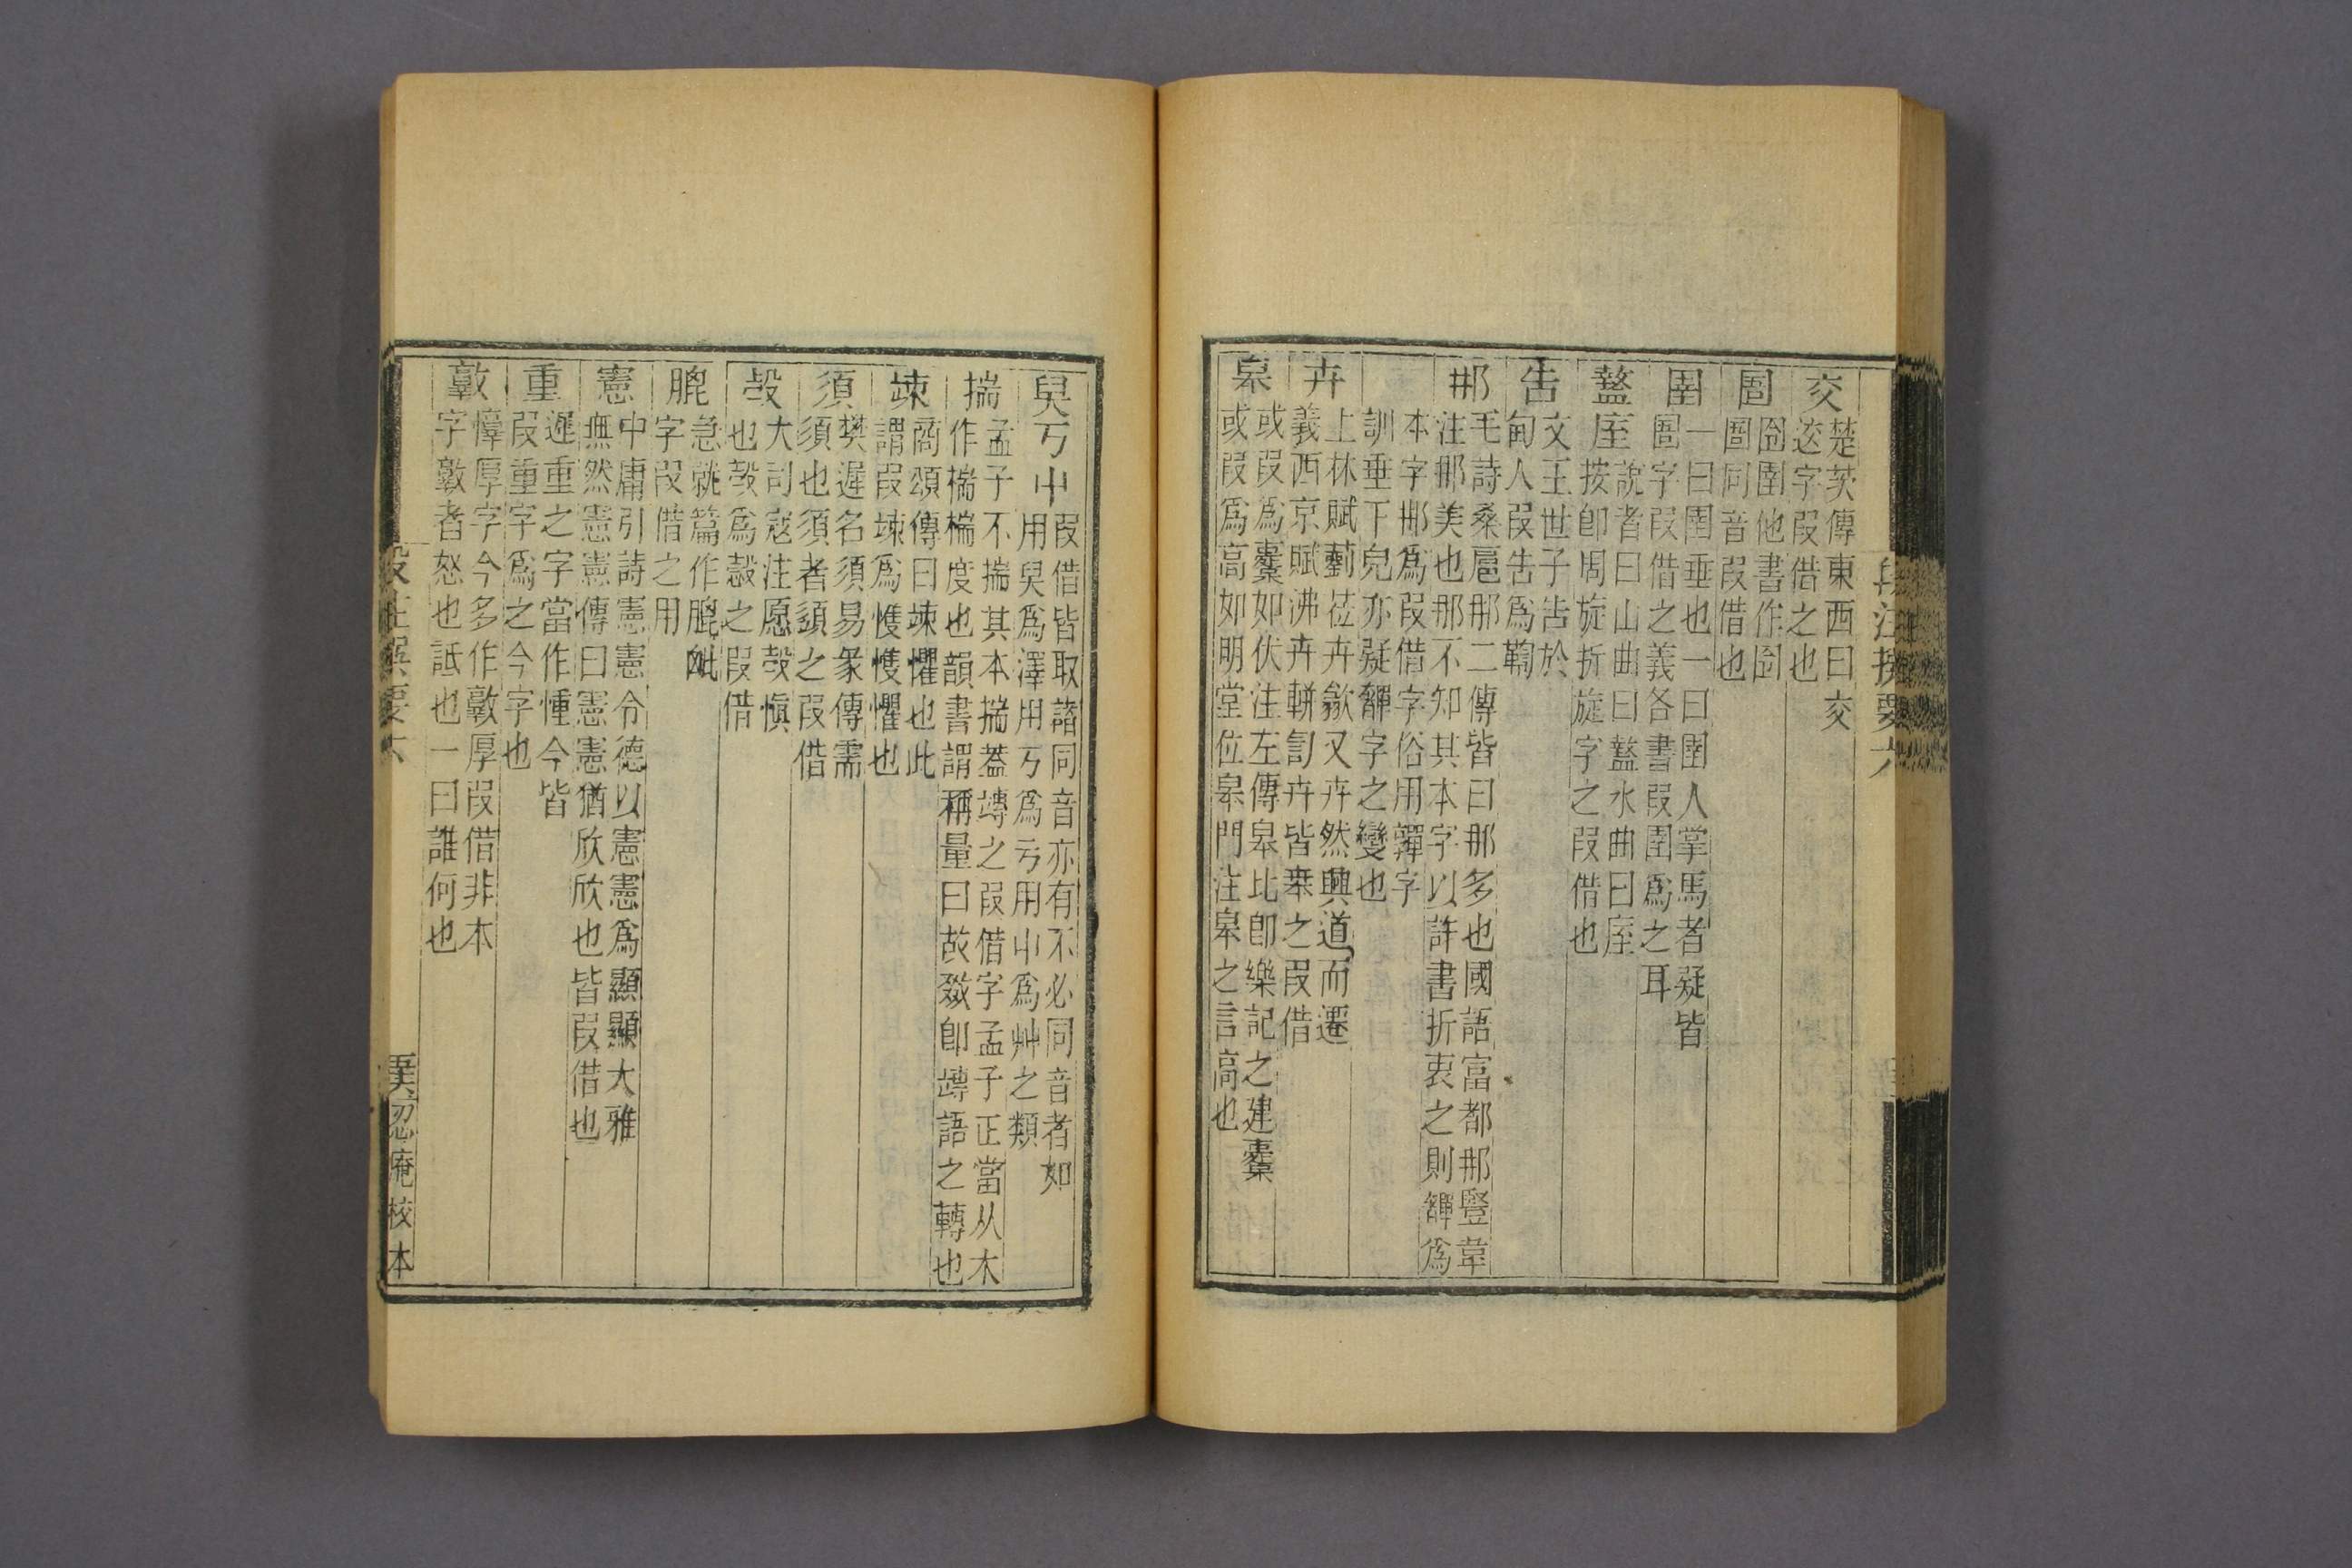 段注撰要六
交
楚茨傳東西曰交
这字叚借之也
圄
囹圉他書作囹
圄同音叚借也
圉
一曰圉垂也一曰圉人掌馬者疑皆
圄字叚借之義各書叚圉爲之耳
盩厔
說者曰山曲曰盩水曲曰厔
按卽周旋折旋字之叚借也
告
文王世子告於
甸人叚告爲鞫
那
毛詩桑扈那二傳皆曰那多也國語富都那豎韋
注那美也那不知其本字以許書折衷之則奲爲
本字那爲叚借字俗用嚲字
訓垂下皃亦疑奲字之變也
卉
上林賦藰莅卉歙又卉然興道而遷
義西京賦沸卉軿訇卉皆𠦪之叚借
皋
或叚爲櫜如伏注左傳皋比卽樂記之建櫜
或叚爲高如明堂位皋門注皋之言高也
臭丂屮
叚借皆取諸同音亦有不必同音者如
用臭爲澤用丂爲亏用屮爲艸之類
揣
孟子不揣其本揣葢㙛之叚借字孟子正當从木
作椯椯度也韻書謂稱量曰故敠卽㙛語之轉也
竦
商頌傳曰竦懼也此
謂叚竦爲愯愯懼也
須
樊遲名須易彖傳需
須也須者䇓之叚借
㱿
大司寇注愿㱿愼
也㱿爲愨之叚借
膍
急就篇作膍𣬈
字叚借之用
憲
中庸引詩憲憲令德以憲憲爲顯顯大雅
無然憲憲傳曰憲憲猶欣欣也皆叚借也
重
遲重之字當作𢛘今皆
叚重字爲之今字也
敦
惇厚字今多作敦厚叚借非本
字敦者怒也詆也一曰誰何也
段注撰要六
忍庵校本